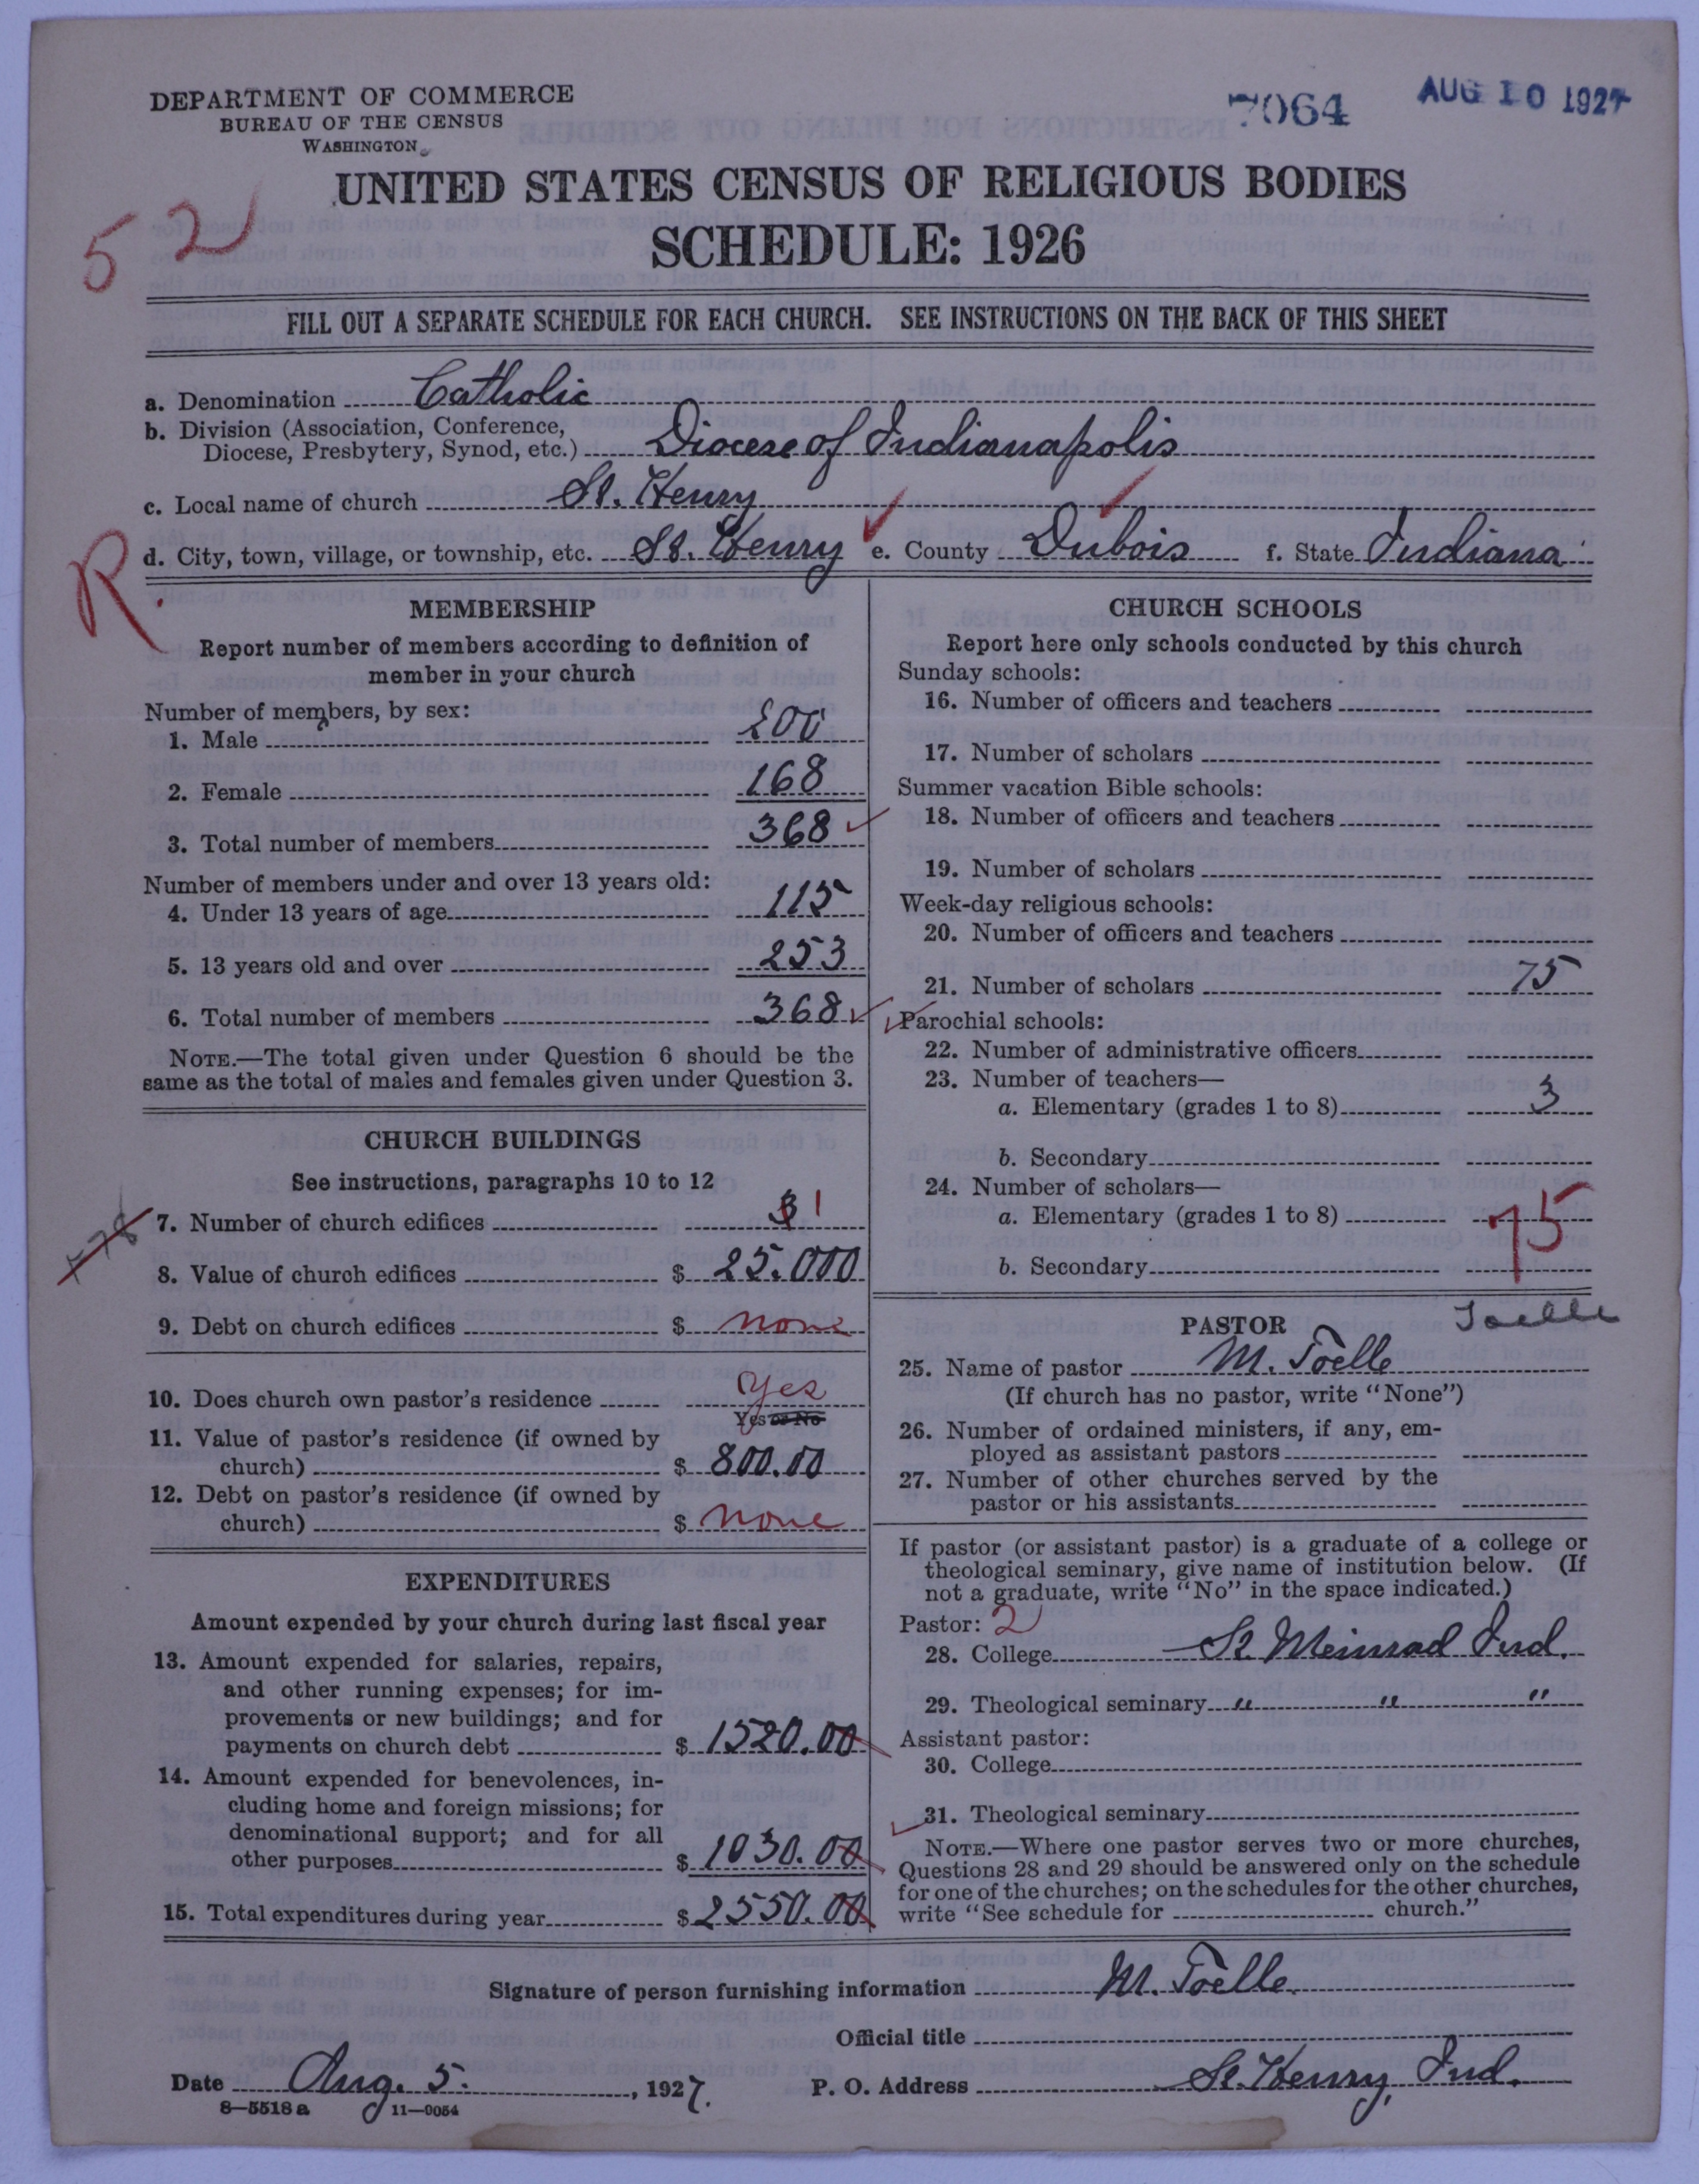 DEPARTMENT OF COMMERCE
BUREAU OF THE CENSUS
WASHINGTON
7064
AUG 10 1927
52
UNITED STATES CENSUS OF RELIGIOUS BODIES
SCHEDULE: 1926
FILL OUT A SEPARATE SCHEDULE FOR EACH CHURCH. SEE INSTRUCTIONS ON THE BACK OF THIS SHEET
a. Denomination Catholic
b. Division (Association, Conference,
Diocese, Presbytery, Synod, etc.) Diocese of Indianapolis
c. Local name of church St. Henry
R.
d. City, town, village, or township, etc. St. Henry e. County Dubois f. State Indiana
MEMBERSHIP
Report number of members according to definition of
member in your church
Number of members, by sex:
1. Male 200
2. Female 168
3. Total number of members 368
Number of members under and over 13 years old:
4. Under 13 years of age 115
5. 13 years old and over 253
6. Total number of members 368
NOTE.—The total given under Question 6 should be the
same as the total of males and females given under Question 3.
CHURCH BUILDINGS
See instructions, paragraphs 10 to 12
7. Number of church edifices 1
8. Value of church edifices $ 25.000
9. Debt on church edifices $ none
10. Does church own pastor's residence Yes
Yes or No
11. Value of pastor's residence (if owned by
church) $ 800.00
12. Debt on pastor's residence (if owned by
church) $ none
EXPENDITURES
Amount expended by your church during last fiscal year
13. Amount expended for salaries, repairs,
and other running expenses; for im-
provements or new buildings; and for
payments on church debt $ 1520.00
14. Amount expended for benevolences, in-
cluding home and foreign missions; for
denominational support; and for all
other purposes $ 1030.00
15. Total expenditures during year $ 2550.00
CHURCH SCHOOLS
Report here only schools conducted by this church
Sunday schools:
16. Number of officers and teachers
17. Number of scholars
Summer vacation Bible schools:
18. Number of officers and teachers
19. Number of scholars
Week-day religious schools:
20. Number of officers and teachers
21. Number of scholars 75
Parochial schools:
22. Number of administrative officers
23. Number of teachers—
a. Elementary (grades 1 to 8) 3
b. Secondary
24. Number of scholars—
a. Elementary (grades 1 to 8) 75
b. Secondary
PASTOR Toelle
25. Name of pastor M. Toelle
(If church has no pastor, write "None")
26. Number of ordained ministers, if any, em-
ployed as assistant pastors
27. Number of other churches served by the
pastor or his assistants
If pastor (or assistant pastor) is a graduate of a college or
theological seminary, give name of institution below. (If
not a graduate, write "No" in the space indicated.)
Pastor: 2
28. College St. Meinrad Ind.
29. Theological seminary " " "
Assistant pastor:
30. College
31. Theological seminary
NOTE.—Where one pastor serves two or more churches,
Questions 28 and 29 should be answered only on the schedule
for one of the churches; on the schedules for the other churches,
write "See schedule for church."
Signature of person furnishing information M. Toelle.
Official title
Date Aug. 5. , 1927. P. O. Address St. Henry, Ind.
8—5518a 11—9054